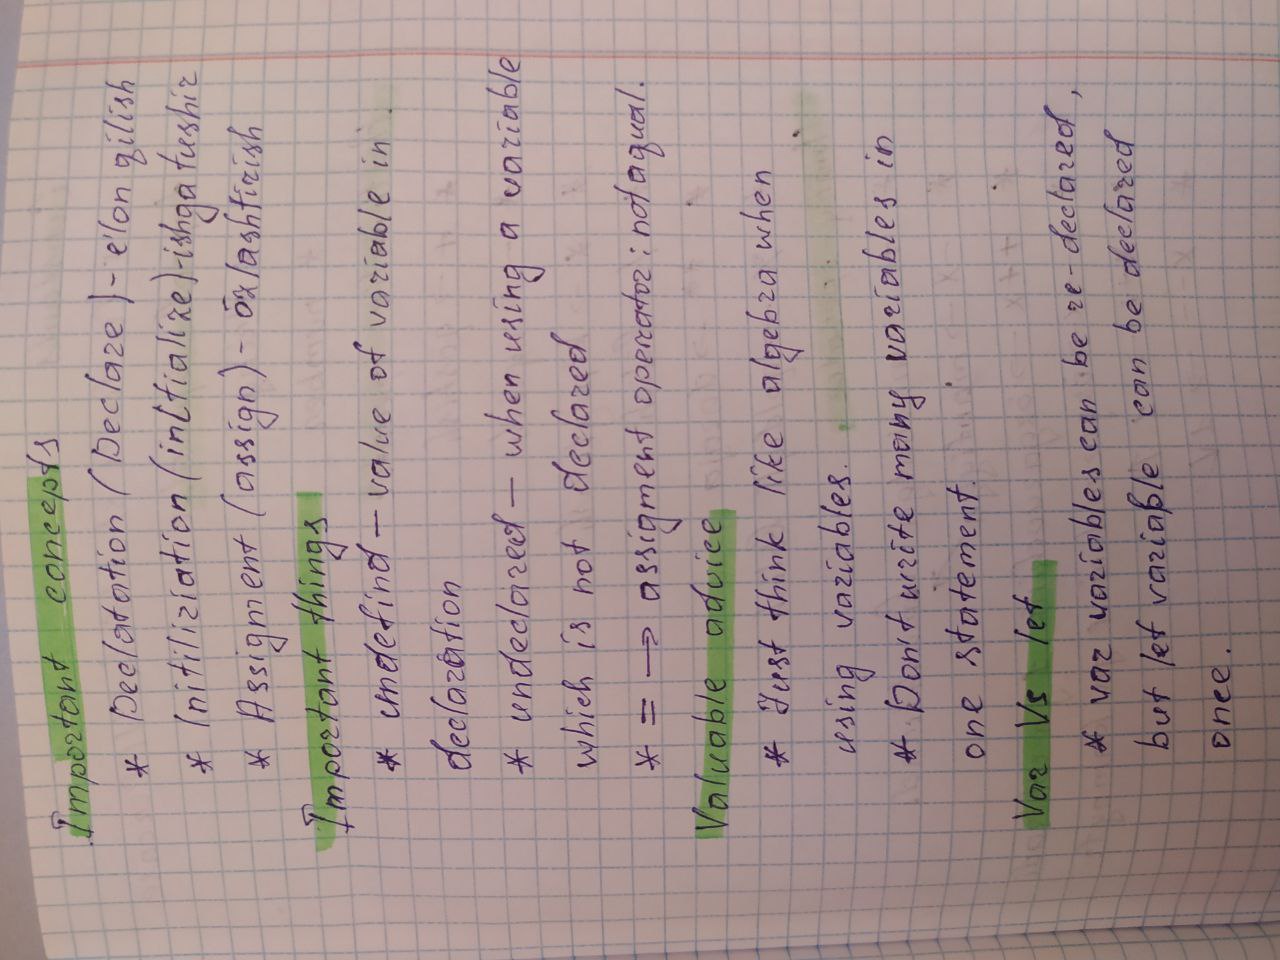 Important concepts
* Declatation (Declare) - e'lon qilish
* Initiliziation (initialize) - ishga tushir
* Assigment (assign) - o'zlashtirish
Important things
* undefind - value of variable in
declaration
* undeclared - when using a variable
which is not declared
* = → assigment operator: not aqual.
Valuable advice
* Just think like algebra when
using variables.
* Don't write many variables in
one statement.
Var Vs let
* var variables can be re-declared,
but let variable can be declared
once.